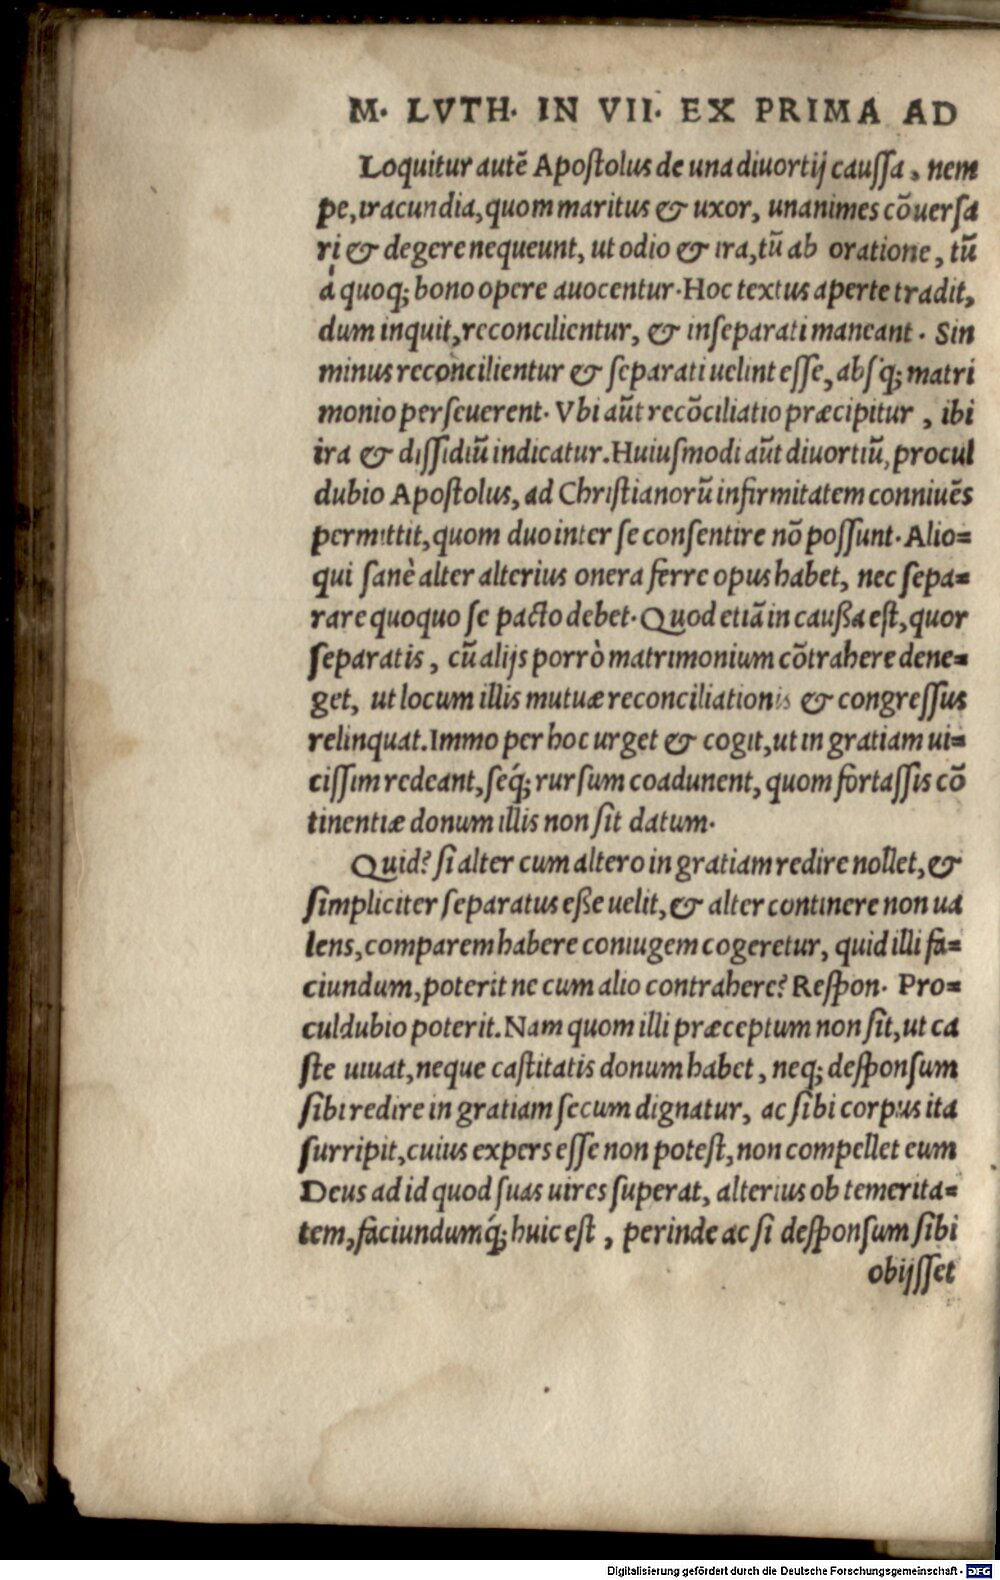 M. LVTH. IN VII. EX PRIMA AD
Loquitur autẽ Apoſtolus de una diuortij cauſſa, nem
pe, iracundia, quom maritus & uxor, unanimes cõuerſa
ri & degere nequeunt, ut odio & ira, tũ ab oratione, tũ
à quoq; bono opere auocentur. Hoc textus aperte tradit,
dum inquit, reconcilientur, & inſeparati maneant. Sin
minus reconcilientur & ſeparati uelint eſſe, abſq; matri
monio perſeuerent. Vbi aũt recõciliatio præcipitur, ibi
ira & diſſidiũ indicatur. Huiuſmodi aũt diuortiũ, procul
dubio Apoſtolus, ad Chriſtianorũ infirmitatem conniuẽs
permittit, quom duo inter ſe conſentire nõ poſſunt. Alio=
qui ſanè alter alterius onera ferre opus habet, nec ſepa=
rare quoquo ſe pacto debet. Quod etiã in cauſʒa eſt, quor
ſeparatis, cũ alijs porrò matrimonium cõtrahere dene=
get, ut locum illis mutuæ reconciliationis & congreſſus
relinquat. Immo per hoc urget & cogit, ut in gratiam ui=
ciſſim redeant, ſeq́; rurſum coadunent, quom fortaſſis cõ
tinentiæ donum illis non ſit datum.
Quid? ſi alter cum altero in gratiam redire nollet, &
ſimpliciter ſeparatus eße uelit, & alter continere non ua
lens, comparem habere coniugem cogeretur, quid illi fa=
ciundum, poterit ne cum alio contrahere? Reſpon. Pro=
culdubio poterit. Nam quom illi præceptum non ſit, ut ca
ſte uiuat, neque caſtitatis donum habet, neq; deſponſum
ſibi redire in gratiam ſecum dignatur, ac ſibi corpus ita
ſurripit, cuius expers eſſe non poteſt, non compellet eum
Deus ad id quod ſuas uires ſuperat, alterius ob temerita=
tem, faciundumq́; huic eſt, perinde ac ſi deſponſum ſibi
obijſſet
Digitalisierung gefördert durch die Deutsche Forschungsgemeinschaft - DFG